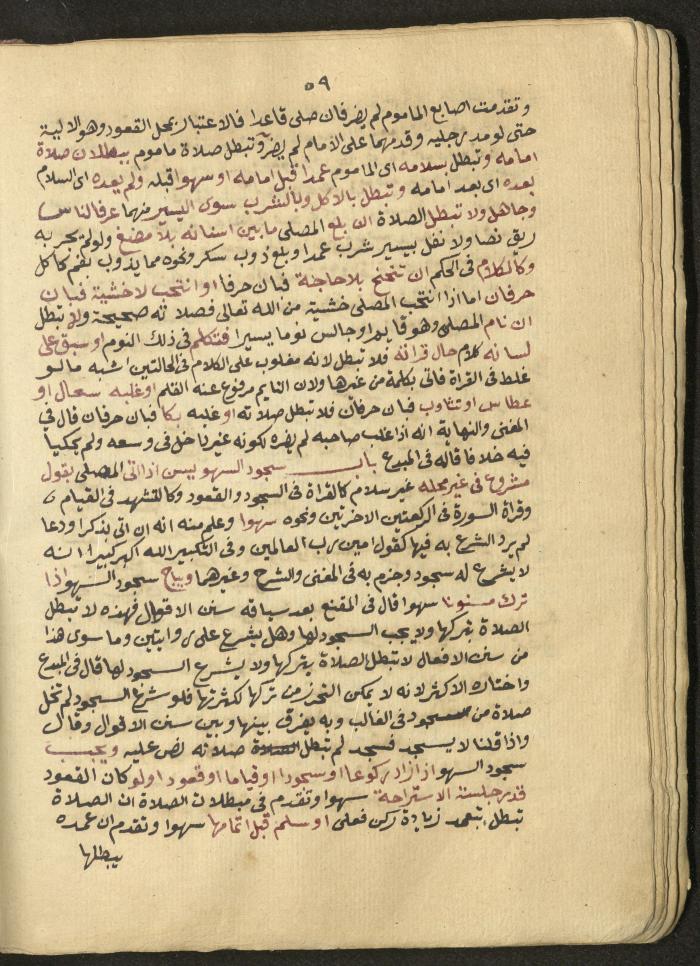 ٥٩
وتقدمت اصابع الماموم لم يضر فان صلى قاعدا فالاعتبار بمحل القعود وهو الالية
حتى لو مد رجليه وقدمهما على الامام لم يضر وتبطل صلاة ماموم ببطلان صلاة
امامه وتبطل بسلامه اى الماموم عمدا قبل امامه او سهوا قبله ولم يعده اى السلام
بعده اى بعد امامه وتبطل بالاكل وبالشرب سوى اليسير منهما عرفا لناس
وجاهل ولا تبطل الصلاة ان بلع المصلى ما بين اسنانه بلا مضغ ولو لم يجر به
ريق نصا ولا نفل بيسير شرب عمدا وبلع ذوب سكر ونحوه مما يذوب بفم كاكل
وكالكلام فى الحكم ان تنحنح بلا حاجة فبان حرفا او انتحب لا خشية فبان
حرفان اما اذا انتحب المصلى خشية من الله تعالى فصلاته صحيحة ولا تبطل
ان نام المصلى وهو قايم او جالس نوما يسيرا فتكلم فى ذلك النوم او سبق على
لسانه كلام حال قراته فلا تبطل لانه مغلوب على الكلام فى الحالتين اشبه ما لو
غلط فى القراة فاتى بكلمة من غيرها ولان النايم مرفوع عنه القلم او غلبه سعال او
عطاس او تثاوب فبان حرفان فلا تبطل صلاته او غلبه بكا فبان حرفان قال فى
المغنى والنهاية انه اذا غلب صاحبه لم يضره لكونه غير داخل فى وسعه ولم يحكيا
فيه خلافا قاله فى المبدع باب سجود السهو يسن اذا اتى المصلى بقول
مشروع فى غير محله غير سلام كالقراة فى السجود والقعود وكالتشهد فى القيام
وقراة السورة فى الركعتين الاخريتين ونحوه سهوا وعلم منه انه ان اتى بذكر او دعا
لم يرد الشرع به فيها كقول امين رب العالمين وفى التكبير الله اكبر كبيرا انه
لا يشرع له سجود وجزم به فى المغنى والشرح وغيرهما ويباح سجود السهو اذا
ترك مسنونا سهوا قال فى المقنع بعد سياقه سنن الاقوال فهذه لا تبطل
الصلاة بتركها ولا يجب السجود لها وهل يشرع على روايتين وما سوى هذا
من سنن الافعال لا تبطل الصلاة بتركها ولا يشرع السجود لها قال فى المبدع
واختاره الاكثر لانه لا يمكن التحرز من تركها لكثرتها فلو شرع السجود لم تخل
صلاة من سجود فى الغالب وبه يفرق بينها وبين سنن الاقوال وقال
واذا قلنا لا يسجد فسجد لم تبطل الصلاة صلاته نص عليه ويجب
سجود السهو اذا زاد ركوعا او سجودا او قياما او قعودا ولو كان القعود
قدر جلسة الاستراحة سهوا وتقدم فى مبطلات الصلاة ان الصلاة
تبطل بتعمد زيادة ركن فعلى او سلم قبل اتمامها سهوا وتقدم ان عمده
يبطلها